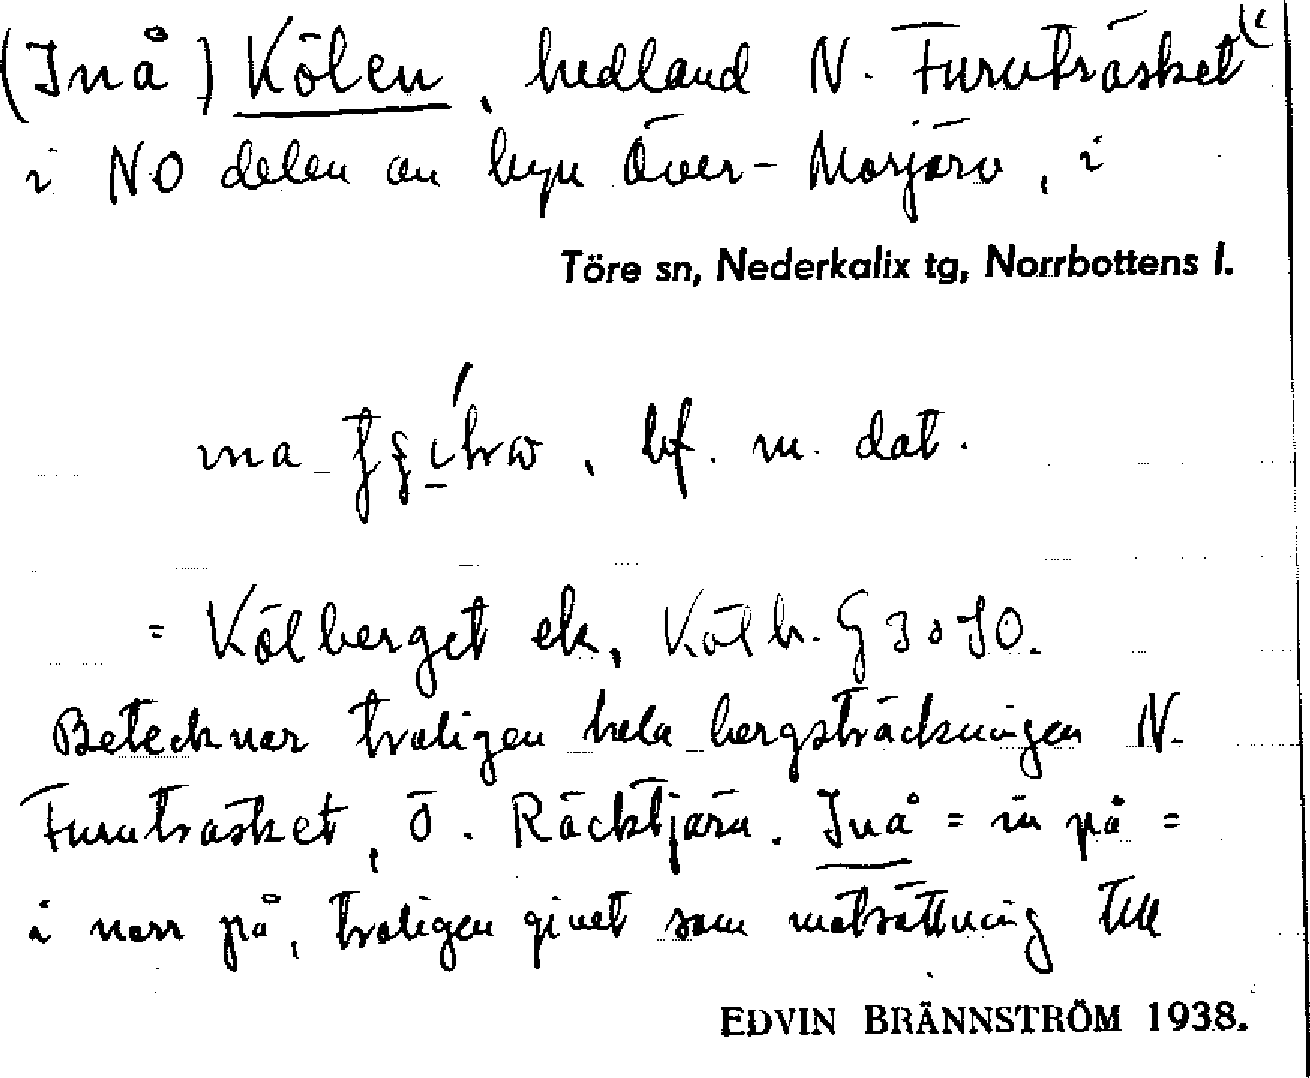 (Inå) Kölen, hedland N. Furuträsket
i NO delen av byn Över-Morjärv, i
Töre sn, Nederkalix tg, Norrbottens l.
bf. m. dat.
= Kölberget ek,
Betecknar troligen hela bergsträckningen N.
Furuträsket, Ö. Räcktjärn. Inå = in på =
i norr på, troligen givet som motsättning till
EDVIN BRÄNNSTRÖM 1938.